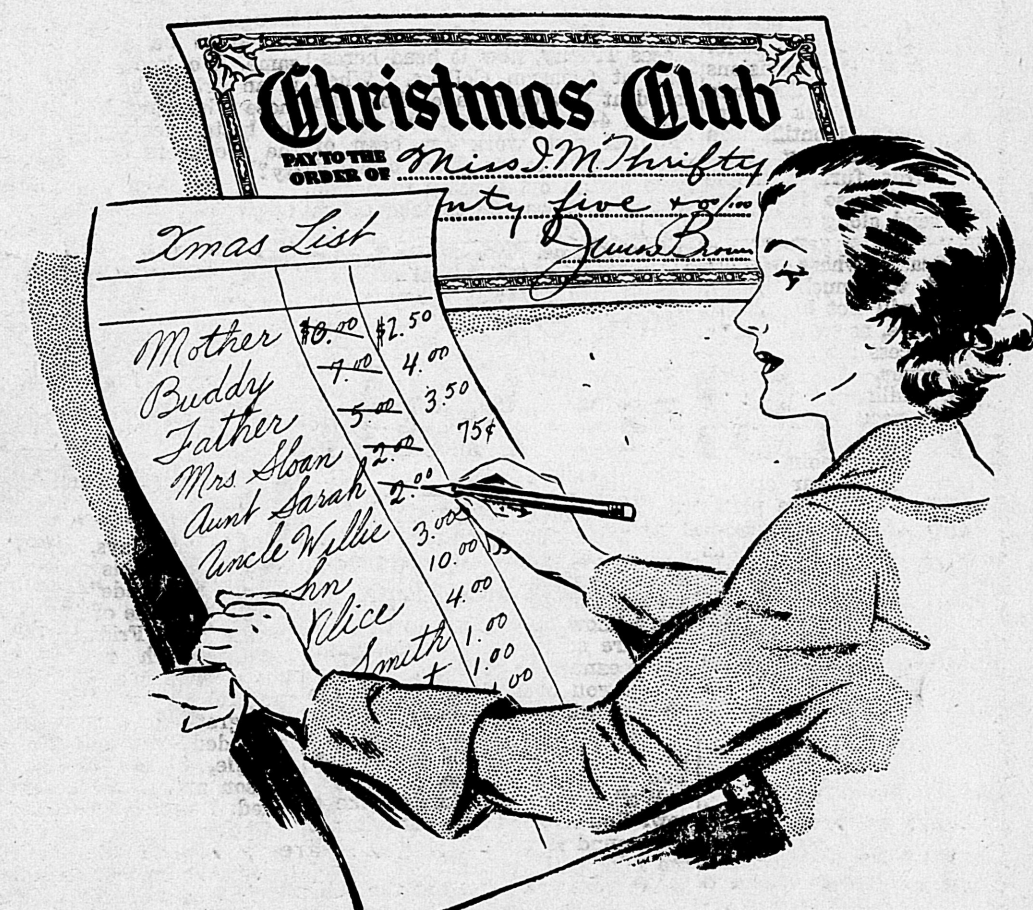 Christmas Club
PAY TO THE
ORDER OF Miss I. M. Thrifty
nty five + 00/100
James Brown
Xmas List
Mother $6.00 $2.50
Buddy 7.00 4.00
Father 5.00 3.50
Mrs Sloan 2.00 75¢
Aunt Sarah 2.00
Uncle Willie 3.00
hn 10.00
Alice 4.00
Smith 1.00
t 1.00
.00